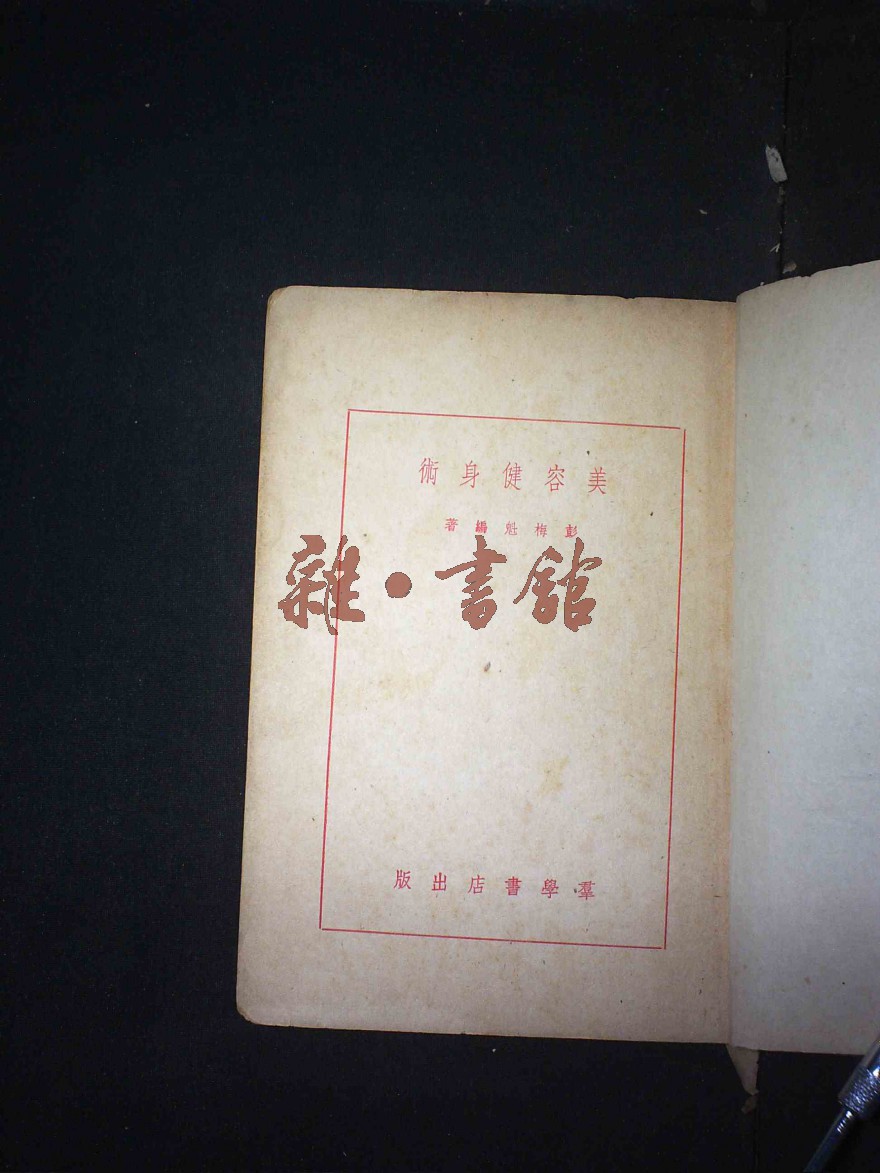 美容健身術
彭梅魁編著
雜·書館
羣學書店出版